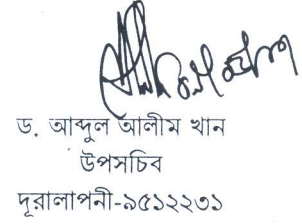 ড. আব্দুল আলীম খান
উপসচিব
দূরালাপনী-৯৫১২২৩১